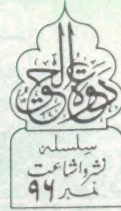 دعوة الحق
سلسله
نشر و اشاعت
نمبر ۹۶